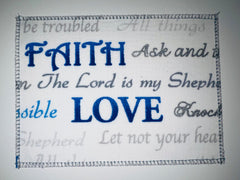 be troubled All things
FAITH Ask and i
n The Lord is my Shephe
sible LOVE Knock
Shepherd Let not your hear
All